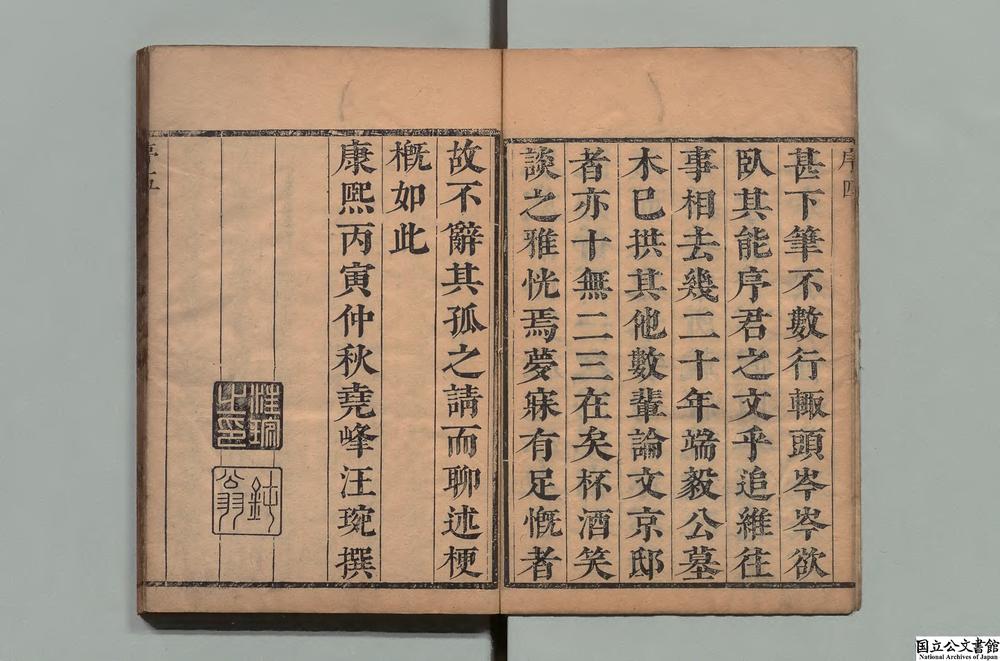 序四
甚下筆不數行輙頭岑岑欲
臥其能序君之文乎追維往
事相去幾二十年端毅公墓
木已拱其他數輩論文京邸
者亦十無二三在矣杯酒笑
談之雅恍焉夢寐有足慨者
故不辭其孤之請而聊述梗
槪如此
康熙丙寅仲秋堯峰汪琬撰
汪琬之印
鈍翁
序五
国立公文書館
National Archives of Japan